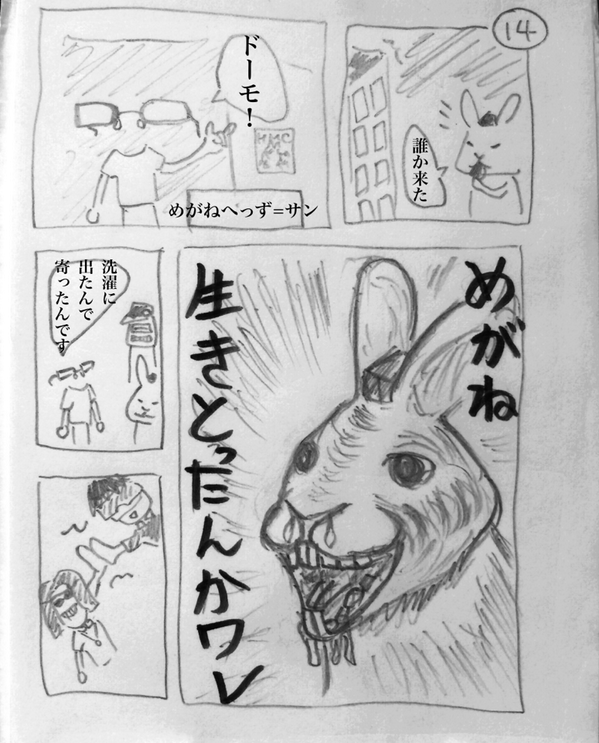 14
誰か来た
ドーモ！
HMC
めがねへっず=サン
めがね
生きとったんかワレ
洗濯に
出たんで
寄ったんです